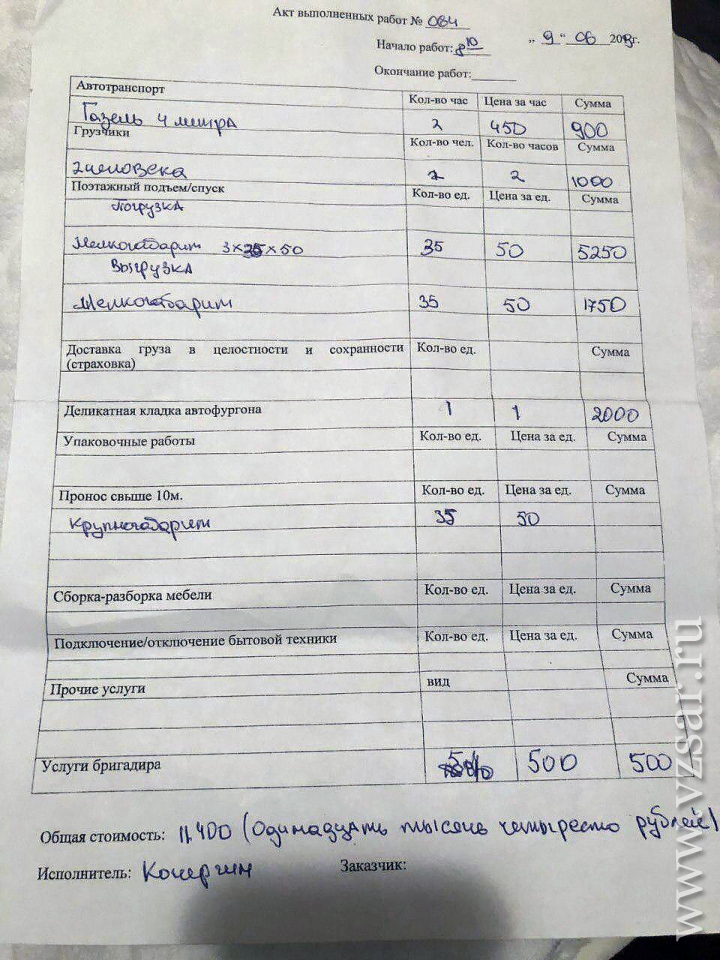 Акт выполненных работ № 084
Начало работ: 8 10 „ 9 “ 06 2018г.
Окончание работ:
Автотранспорт Кол-во час Цена за час Сумма
Газель 4 метра 2 450 900
Грузчики Кол-во чел. Кол-во часов Сумма
2 человека 2 2 1000
Поэтажный подъем/спуск Кол-во ед. Цена за ед. Сумма
Погрузка
Мелкогабарит 3×35×50 35 50 5250
Выгрузка
Мелкогабарит 35 50 1750
Доставка груза в целостности и сохранности Кол-во ед. Сумма
(страховка)
Деликатная кладка автофургона 1 1 2000
Упаковочные работы Кол-во ед. Цена за ед. Сумма
Пронос свыше 10м. Кол-во ед. Цена за ед. Сумма
Крупногабарит 35 50
Сборка-разборка мебели Кол-во ед. Цена за ед. Сумма
Подключение/отключение бытовой техники Кол-во ед. Цена за ед. Сумма
Прочие услуги вид Сумма
Услуги бригадира 5% 500 500
Общая стоимость: 11.400 (Одинадцать тысячь четыресто рублей)
Исполнитель: Кочергин Заказчик:
www.vzsar.ru